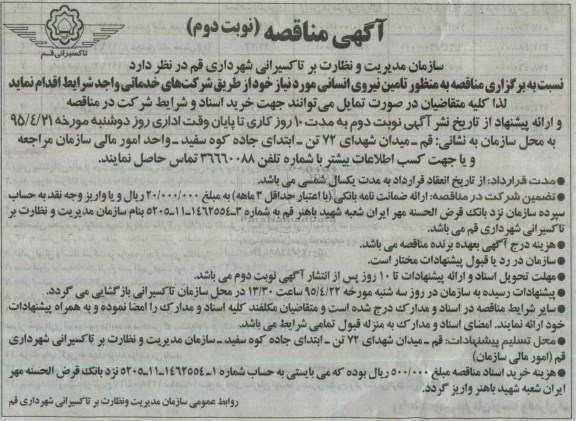 آگهی مناقصه (نوبت دوم)
تاکسیرانی قم
سازمان مدیریت و نظارت بر تاکسیرانی شهرداری قم در نظر دارد
نسبت به برگزاری مناقصه به منظور تامین نیروی انسانی مورد نیاز خود از طریق شرکت‌های خدماتی واجد شرایط اقدام نماید
لذا کلیه متقاضیان در صورت تمایل می‌توانند جهت خرید اسناد و شرایط شرکت در مناقصه
و ارائه پیشنهاد از تاریخ نشر آگهی نوبت دوم به مدت ۱۰ روز کاری تا پایان وقت اداری روز دوشنبه مورخه ۹۵/۴/۲۱
به محل سازمان به نشانی: قم ـ میدان شهدای ۷۲ تن ـ ابتدای جاده کوه سفید ـ واحد امور مالی سازمان مراجعه
و یا جهت کسب اطلاعات بیشتر با شماره تلفن ۳۶۶۶۰۰۸۸ تماس حاصل نمایند.
● مدت قرارداد: از تاریخ انعقاد قرارداد به مدت یکسال شمسی می باشد.
● تضمین شرکت در مناقصه: ارائه ضمانت نامه بانکی (با اعتبار حداقل ۳ ماهه) به مبلغ ۲۰/۰۰۰/۰۰۰ ریال و یا واریز وجه نقد به حساب
سپرده سازمان نزد بانک قرض الحسنه مهر ایران شعبه شهید باهنر قم به شماره ۳ـ۱۴۶۲۵۵۴ـ۱۱ـ۵۲۰۵ بنام سازمان مدیریت و نظارت بر
تاکسیرانی شهرداری قم می باشد.
● هزینه درج آگهی بعهده برنده مناقصه می باشد.
● سازمان در رد یا قبول پیشنهادات مختار است.
● مهلت تحویل اسناد و ارائه پیشنهادات تا ۱۰ روز پس از انتشار آگهی نوبت دوم می باشد.
● پیشنهادات رسیده به سازمان در روز سه شنبه مورخه ۹۵/۴/۲۲ ساعت ۱۳/۳۰ در محل سازمان تاکسیرانی بازگشایی می گردد.
● سایر شرایط مناقصه در اسناد و مدارک درج شده است و متقاضیان مکلفند کلیه اسناد و مدارک را امضا نموده و به همراه پیشنهادات
خود ارائه نمایند. امضای اسناد و مدارک به منزله قبول تمامی شرایط می باشد.
● محل تسلیم پیشنهادات: قم ـ میدان شهدای ۷۲ تن ـ ابتدای جاده کوه سفید ـ سازمان مدیریت و نظارت بر تاکسیرانی شهرداری
قم (امور مالی سازمان)
● هزینه خرید اسناد مناقصه مبلغ ۵۰۰/۰۰۰ ریال بوده که می بایستی به حساب شماره ۱ـ۱۴۶۲۵۵۴ـ۱۱ـ۵۲۰۵ نزد بانک قرض الحسنه مهر
ایران شعبه شهید باهنر واریز گردد.
روابط عمومی سازمان مدیریت ونظارت بر تاکسیرانی شهرداری قم